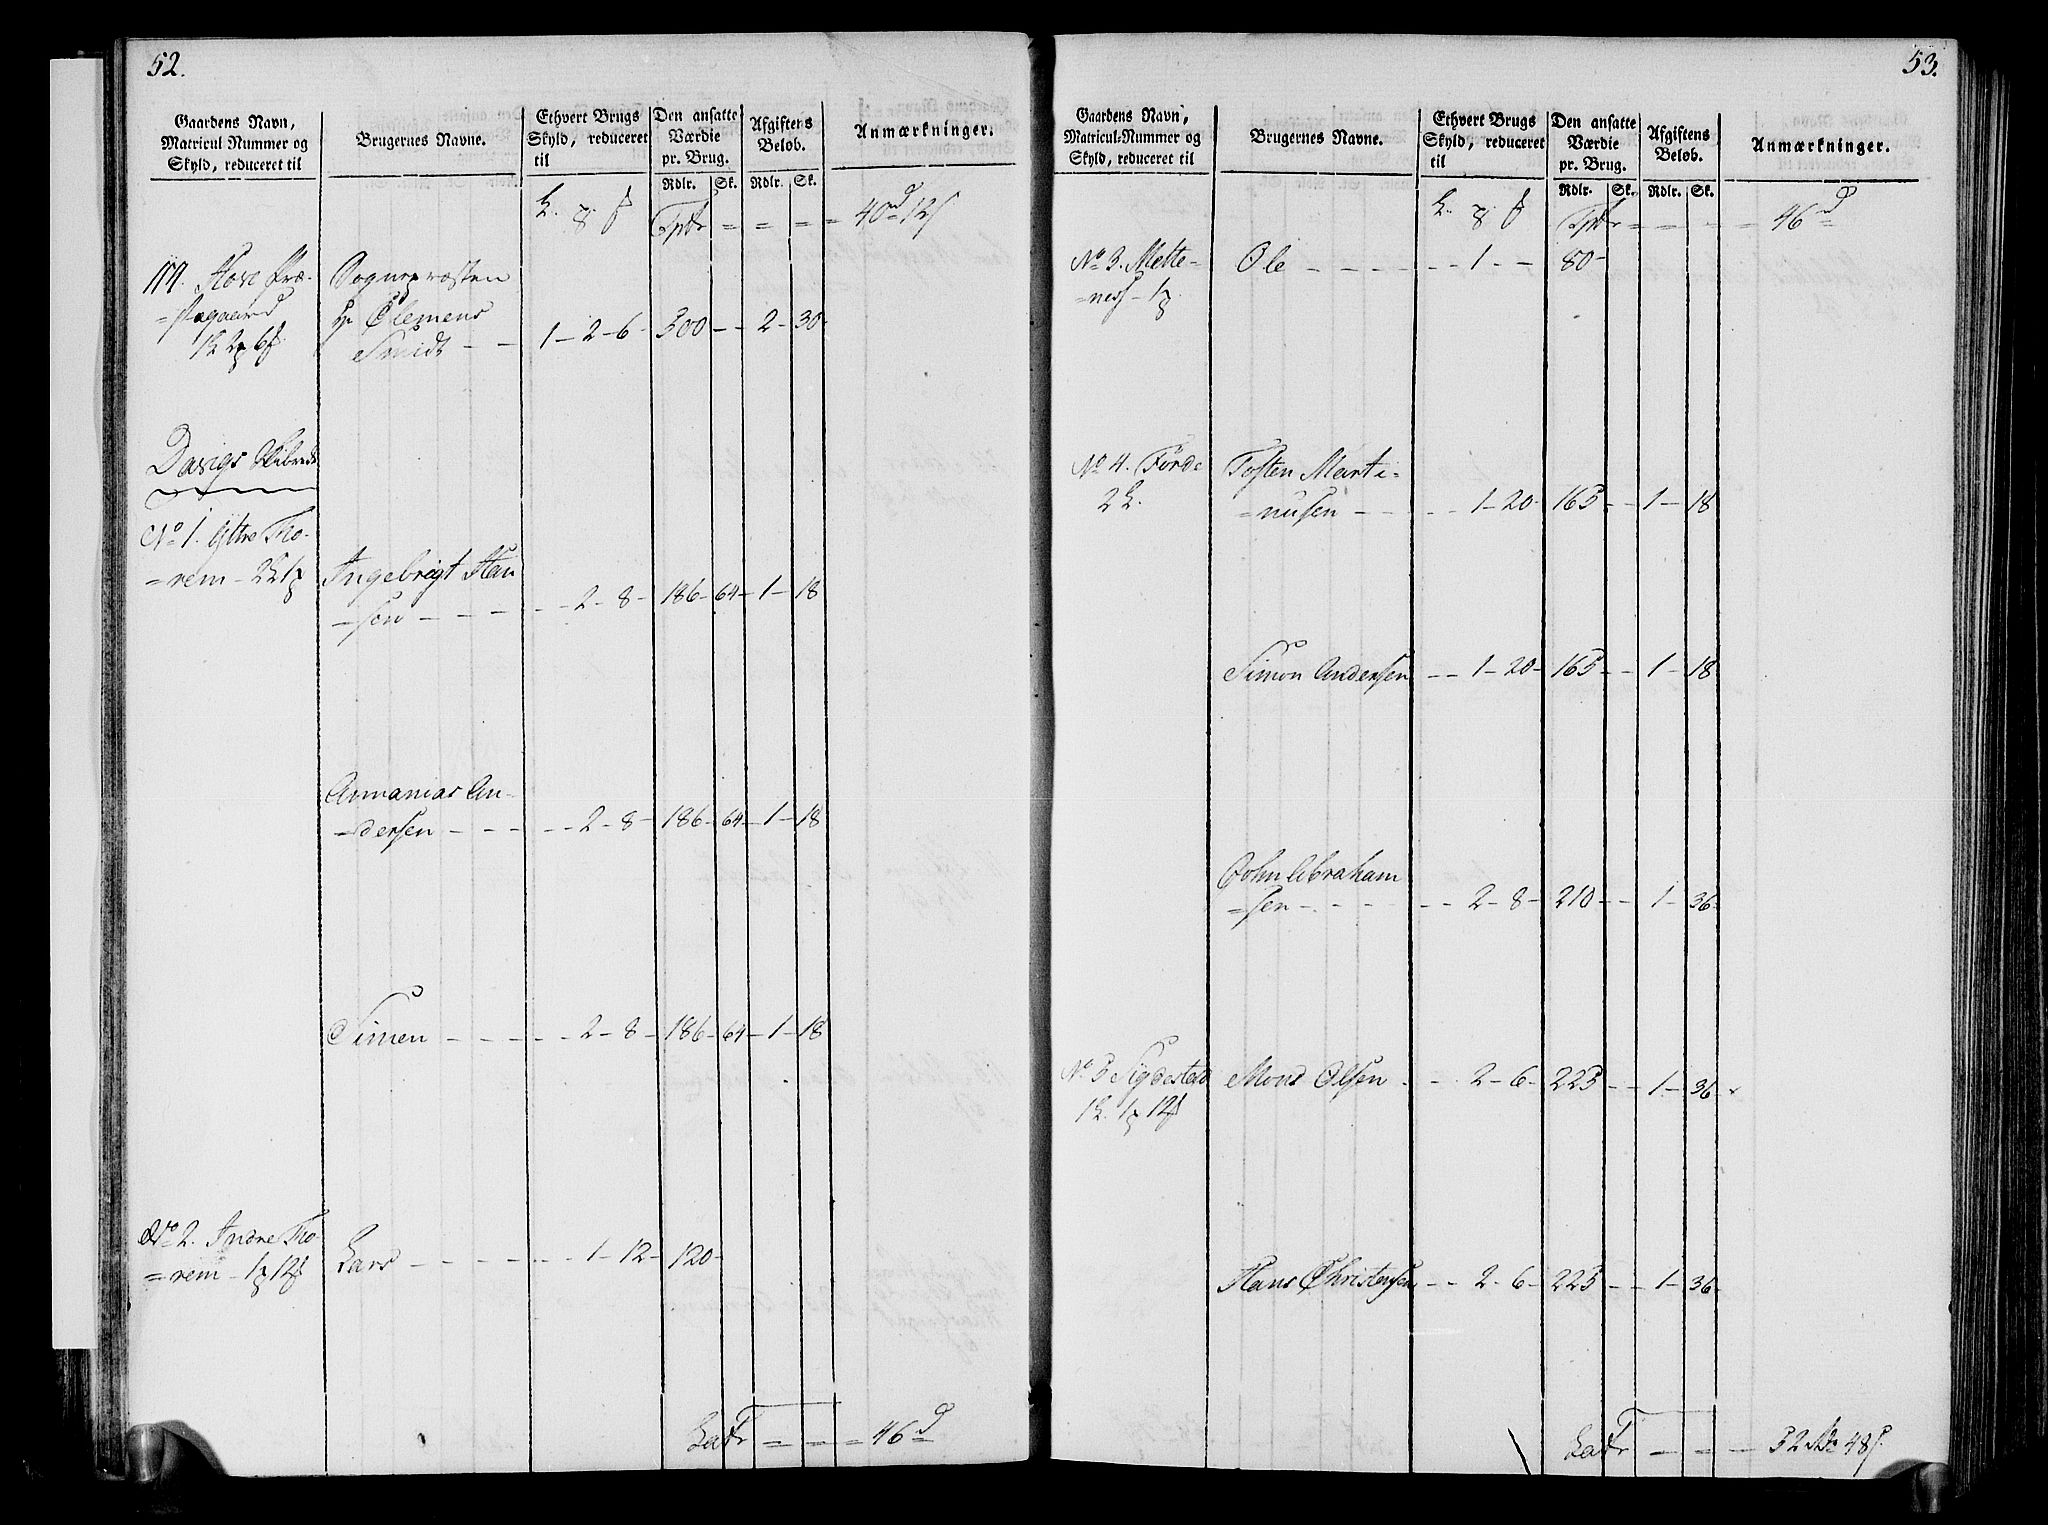 52.
Gaardens Navn, Matricul Nummer og Skyld, reduceret til
Brugernes Navne.
Ethvert Brugs Skyld, reduceret til
Den ansatte Værdie pr. Brug.
Afgiftens Beløb.
Anmærkninger.
Rdlr. Sk. Rdlr. Sk.
Tptr = = = = 40 12
Hove Præ- Sognepræsten
=stegaard Hr Clemens
Smidt - - 1 - 2 - 6 300 - - 2 - 30
Davigs Skibrede
No 1. Yttre Ho-
=rem - Ingebrigt Han
=sen - - - - - 2 - 8 - 186 - 64 - 1 - 18
Annanias An-
=dersen - - - - - - 2 - 8 - 186 - 64 - 1 - 18
Simen - - - - - 2 - 8 - 186 - 64 - 1 - 18
No 2. Indre Ho
=rem - 1 12 Lars - - - - - - 1 - 12 - 120 -
Latr = - - = 46
53.
Gaardens Navn, Matricul-Nummer og Skyld, reduceret til
Brugernes Navne.
Ethvert Brugs Skyld, reduceret til
Den ansatte Værdie pr. Brug.
Afgiftens Beløb.
Anmærkninger.
Rdlr. Sk. Rdlr. Sk.
Tptr = - - - - 46
No 3. Mette- Ole - - - - - - 1 - - 80 -
=ness - 1
No 4. Förde Tosten Marti-
=nusen - - - - 1 - 20 - 165 - - 1 - 18
Simon Andersen - - 1 - 20 - 165 - - 1 - 18
John Abraham
=sen - - - - - - 2 - 8 - 210 - - 1 - 36 -
No 5 Sigdestad Mons Olsen - - - 2 - 6 - 225 - - 1 - 36
Hans Christensen - - 2 - 6 - 225 - - 1 - 36 -
Latr - - - - 52 48